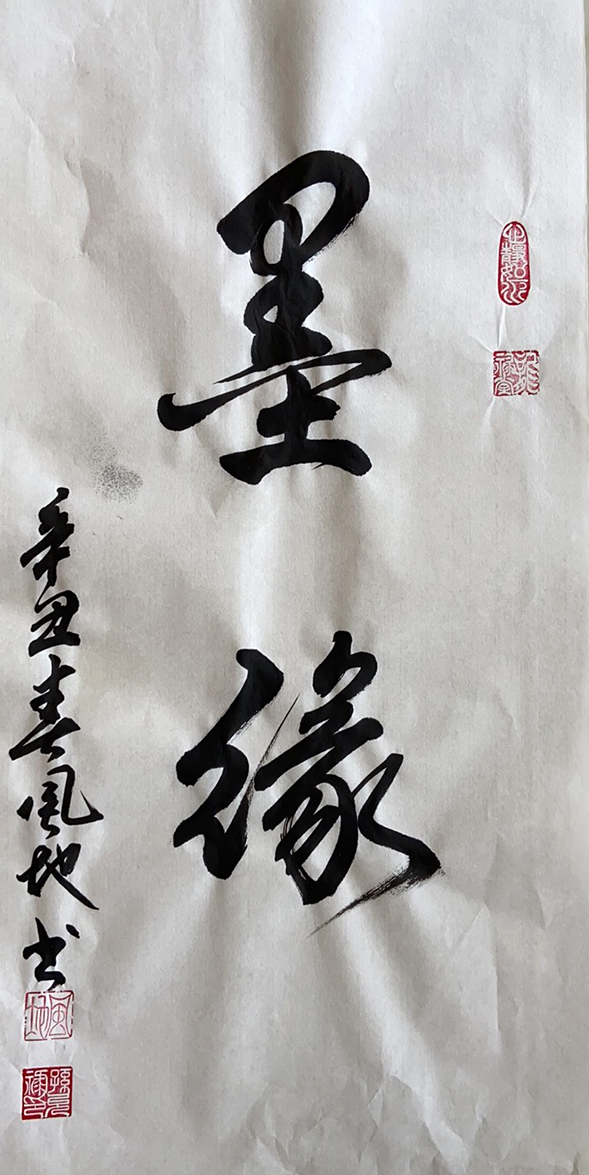 墨缘
辛丑春風地书
風地